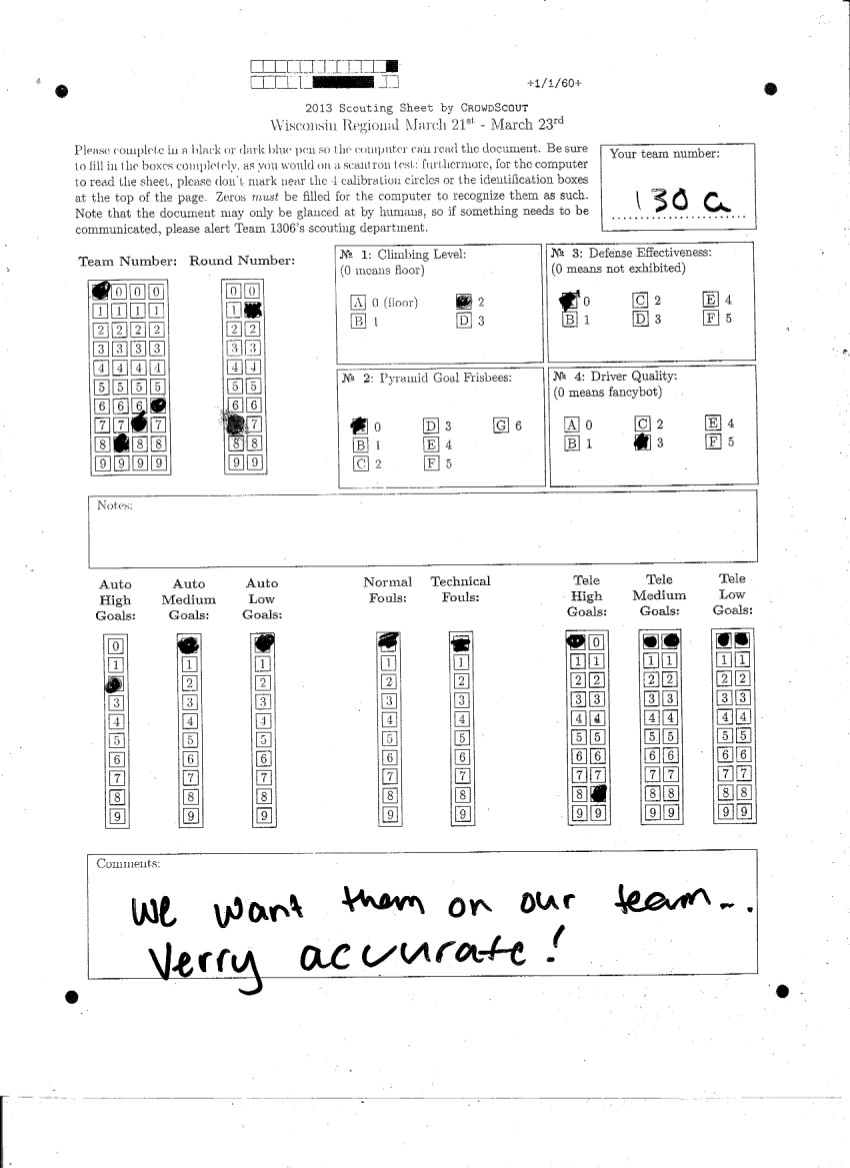 +1/1/60+
2013 Scouting Sheet by CROWDSCOUT
Wisconsin Regional March 21st - March 23rd
Please complete in a black or dark blue pen so the computer can read the document. Be sure
to fill in the boxes completely, as you would on a scantron test; furthermore, for the computer
to read the sheet, please don't mark near the 4 calibration circles or the identification boxes
at the top of the page. Zeros must be filled for the computer to recognize them as such.
Note that the document may only be glanced at by humans, so if something needs to be
communicated, please alert Team 1306's scouting department.
Your team number:
130a
Team Number: Round Number:
0 0 0 0 0
1 1 1 1 1
2 2 2 2 2 2
3 3 3 3 3 3
4 4 4 4 4 4
5 5 5 5 5 5
6 6 6 6 6
7 7 7 7
8 8 8 8 8
9 9 9 9 9 9
№ 1: Climbing Level:
(0 means floor)
A 0 (floor) 2
B 1 D 3
№ 3: Defense Effectiveness:
(0 means not exhibited)
0 C 2 E 4
B 1 D 3 F 5
№ 2: Pyramid Goal Frisbees:
0 D 3 G 6
B 1 E 4
C 2 F 5
№ 4: Driver Quality:
(0 means fancybot)
A 0 C 2 E 4
B 1 3 F 5
Notes:
Auto High Goals:
Auto Medium Goals:
Auto Low Goals:
Normal Fouls:
Technical Fouls:
Tele High Goals:
Tele Medium Goals:
Tele Low Goals:
0 0
1 1 1 1 1 1 1 1 1 1 1
2 2 2 2 2 2 2 2 2 2
3 3 3 3 3 3 3 3 3 3 3
4 4 4 4 4 4 4 4 4 4 4
5 5 5 5 5 5 5 5 5 5 5
6 6 6 6 6 6 6 6 6 6 6
7 7 7 7 7 7 7 7 7 7 7
8 8 8 8 8 8 8 8 8 8
9 9 9 9 9 9 9 9 9 9 9
Comments:
we want them on our team...
Verry accurate!